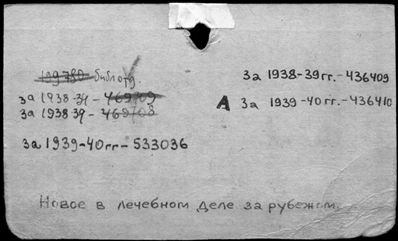 109780 библ отд.
за 1938-39 - 469709
за 1938-39 - 469708
за 1939-40 гг - 533036
За 1938-39 гг. - 436409
А За 1939-40 гг. - 436410
Новое в лечебном деле за рубежом.